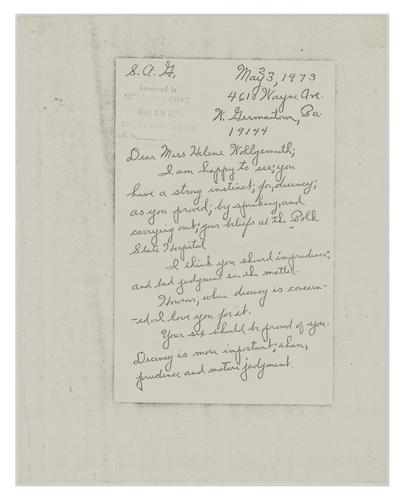 S. A. G,
May 23, 1973
4618 Wayne Ave.
W. Germantown, Pa.
19144
Received in
OFFICE
Dear Mrs Helene Wohlgemuth;
I am happy to see; you
have a strong instinct; for, decency;
as you proved; by speaking, and
carrying out; your beliefs at the Polk
State Hospital
I think you showed imprudence;
and bad judgment in the matter.
However, where decency is concern-
-ed I love you for it.
Your sex should be proud of you.
Decency is more important; than,
prudence and mature judgment.